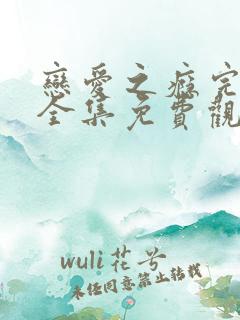 戀愛之癡完
全集免費觀
wuli花兮
未经同意禁止转载